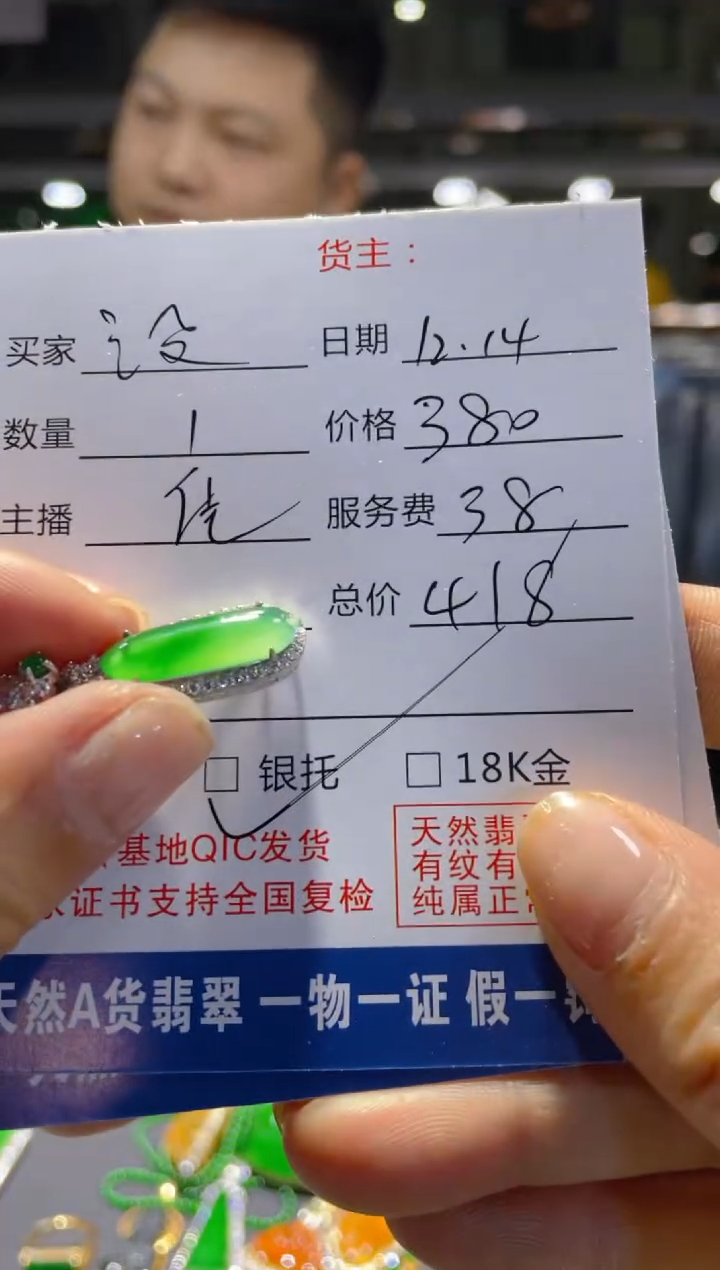 货主：
买家 设 日期 12.14
数量 1 价格 380
主播 佳 服务费 38
总价 418
银托 18K金
基地QIC发货
证书支持全国复检
天然翡
有纹有
纯属正常
天然A货翡翠 一物一证 假一